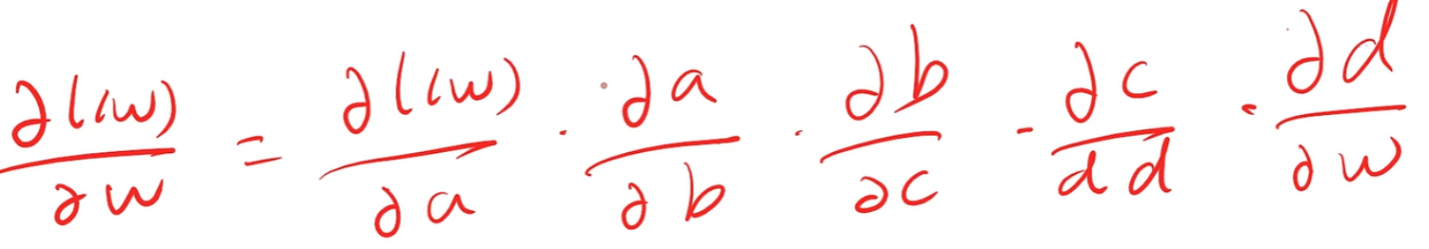 ∂l(w)/∂w = ∂l(w)/∂a · ∂a/∂b · ∂b/∂c · ∂c/∂d · ∂d/∂w